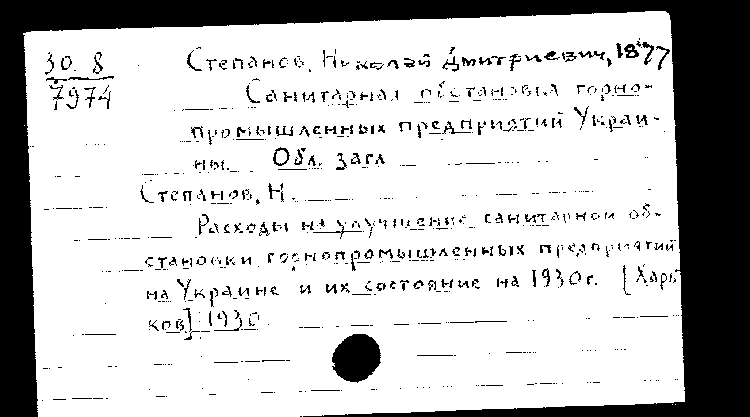 30. 8
7974
Степанов, Николай Дмитриевич, 1877
Санитарная обстановка горно-
промышленных предприятий Украи-
ны. Обл. загл
Степанов, Н.
Расходы на улучшение санитарной об-
становки горнопромышленных предприятий
на Украине и их состояние на 1930 г. [Харь
ков] 1930